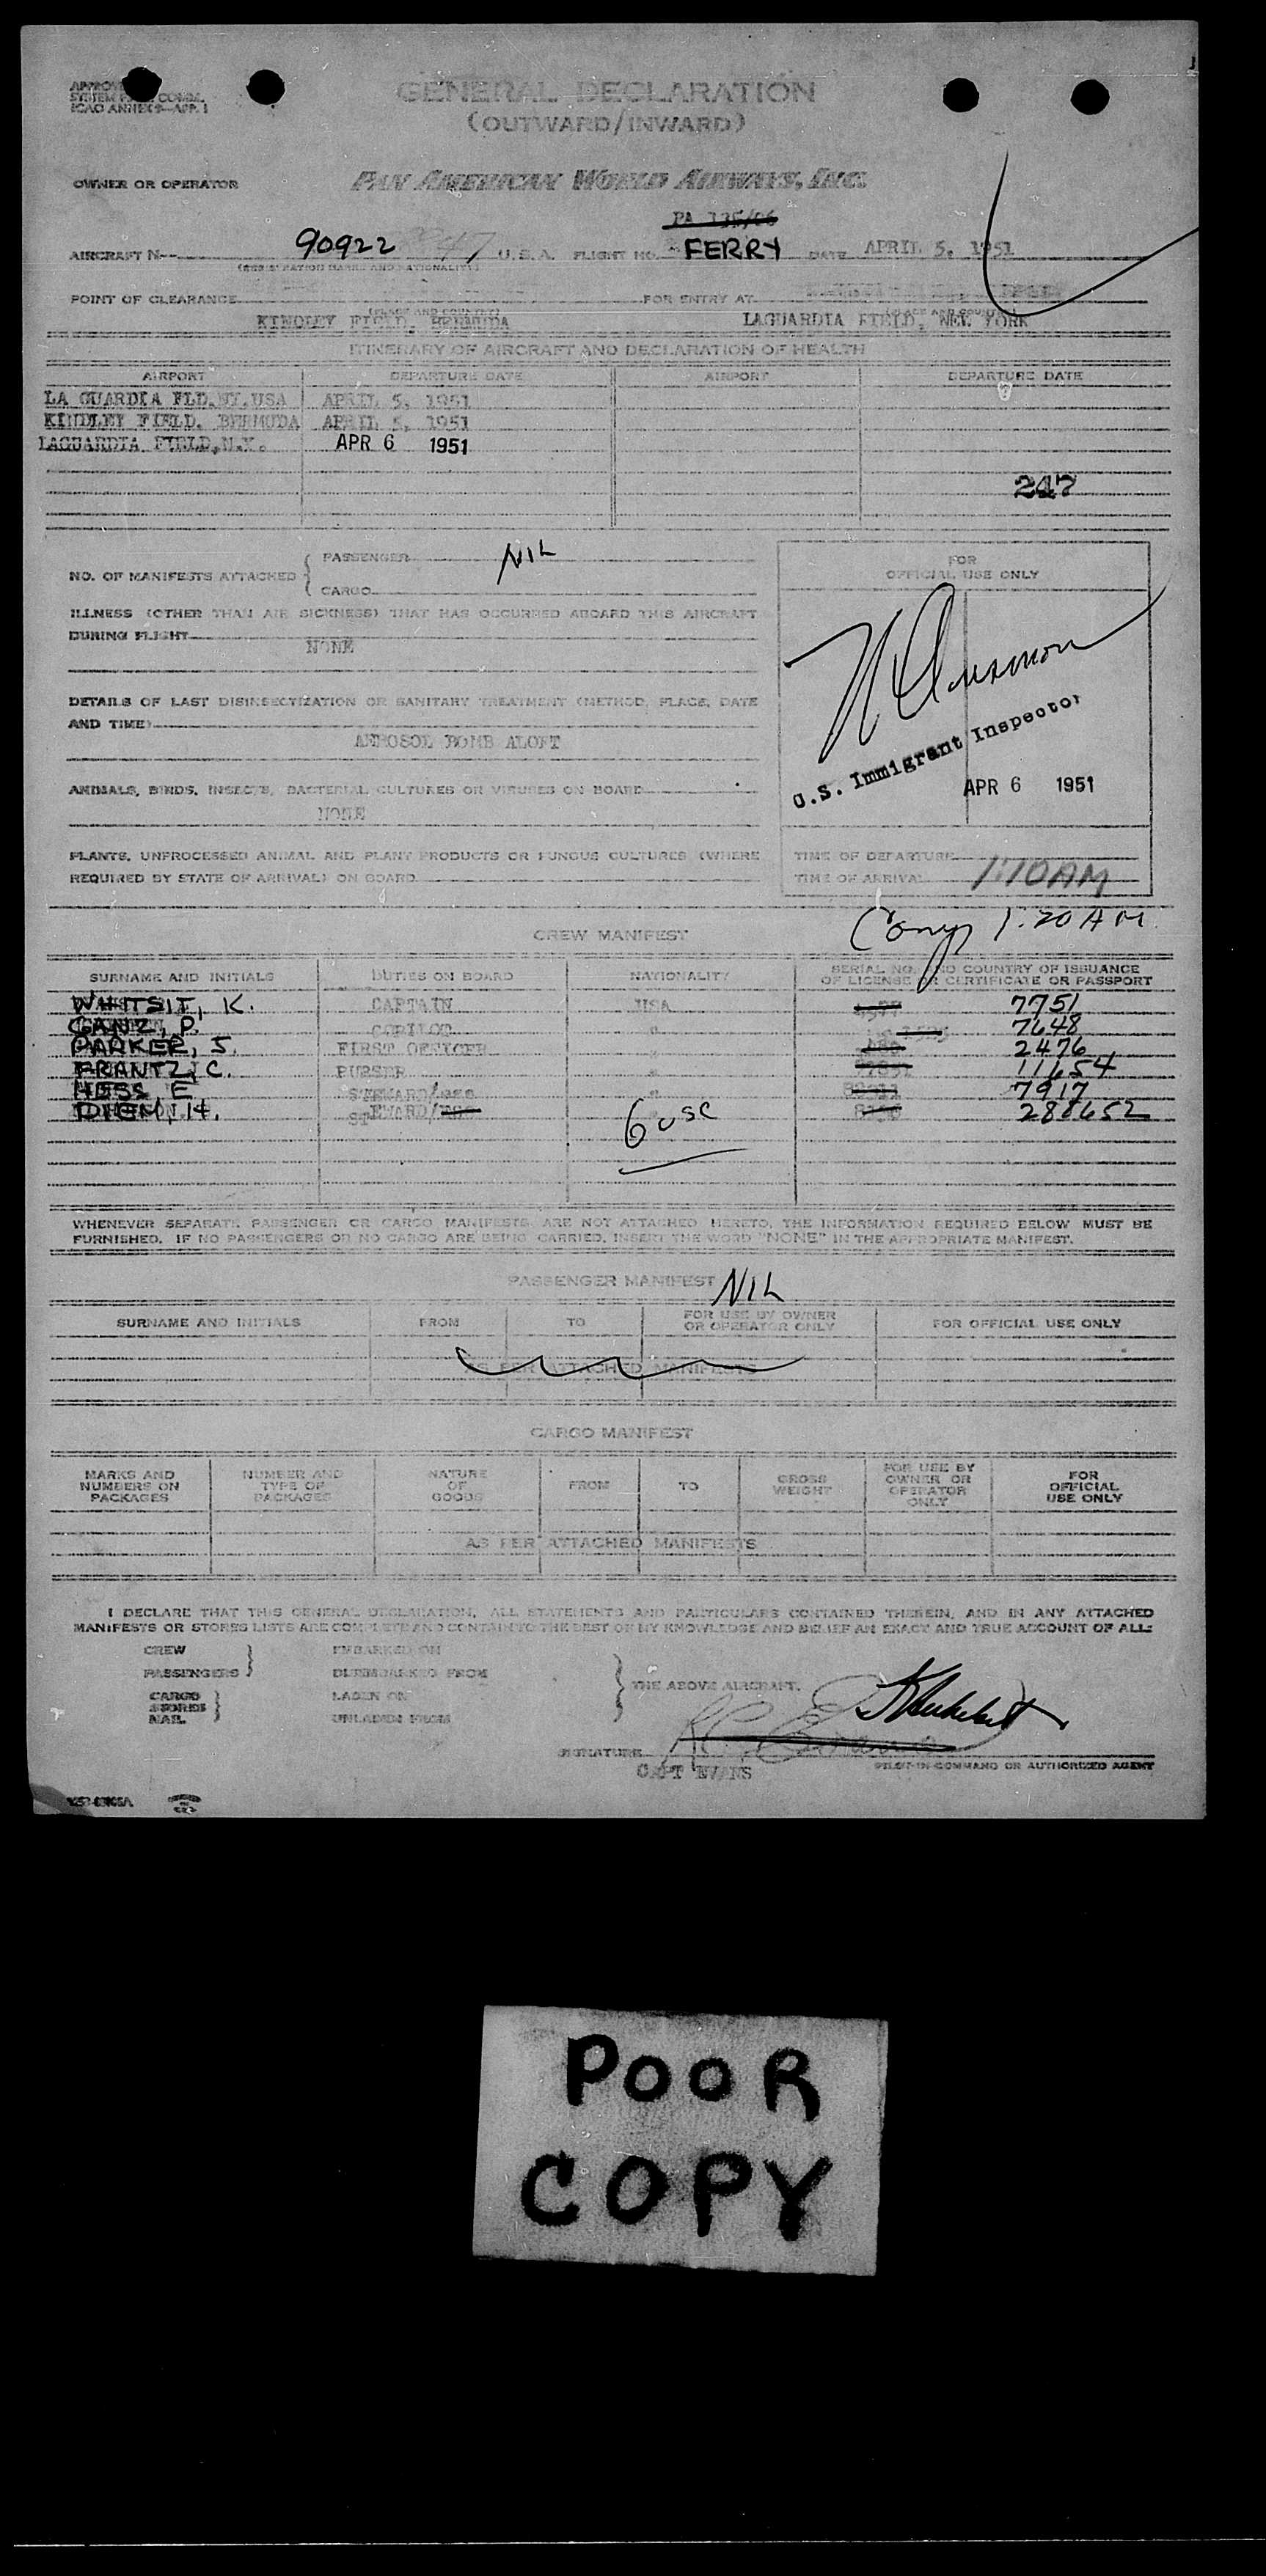 GENERAL DECLARATION
(OUTWARD/INWARD)
OWNER OR OPERATOR PAN AMERICAN WORLD AIRWAYS, INC.
AIRCRAFT N-- 90922 47 U.S.A. FLIGHT NO. FERRY DATE APRIL 5, 1951
(REGISTRATION MARKS AND NATIONALITY)
POINT OF CLEARANCE FOR ENTRY AT
(PLACE AND COUNTRY) (PLACE AND COUNTRY)
KINDLEY FIELD, BERMUDA LAGUARDIA FIELD, NEW YORK
ITINERARY OF AIRCRAFT AND DECLARATION OF HEALTH
AIRPORT DEPARTURE DATE AIRPORT DEPARTURE DATE
LA GUARDIA FLD.NY.USA APRIL 5, 1951
KINDLEY FIELD. BERMUDA APRIL 5, 1951
LAGUARDIA FIELD,N.Y. APR 6 1951
247
NO. OF MANIFESTS ATTACHED { PASSENGER NIL
CARGO
ILLNESS (OTHER THAN AIR SICKNESS) THAT HAS OCCURRED ABOARD THIS AIRCRAFT
DURING FLIGHT
NONE
DETAILS OF LAST DISINSECTIZATION OR SANITARY TREATMENT (METHOD, PLACE, DATE
AND TIME)
AEROSOL BOMB ALOFT
ANIMALS, BIRDS, INSECTS, BACTERIAL CULTURES OR VIRUSES ON BOARD
NONE
PLANTS, UNPROCESSED ANIMAL AND PLANT PRODUCTS OR FUNGUS CULTURES (WHERE
REQUIRED BY STATE OF ARRIVAL) ON BOARD
FOR
OFFICIAL USE ONLY
U.S. Immigrant Inspector
APR 6 1951
TIME OF DEPARTURE
TIME OF ARRIVAL 1:10 AM
1:20 AM
CREW MANIFEST
SURNAME AND INITIALS DUTIES ON BOARD NATIONALITY SERIAL NO. AND COUNTRY OF ISSUANCE
OF LICENSE OR CERTIFICATE OR PASSPORT
WHITSIT, K. CAPTAIN USA 7751
GANZ, P. COPILOT " 7648
PARKER, J. FIRST OFFICER " 2476
FRANTZ, C. PURSER " 11654
HESS E STEWARD/ESS " 7917
DIEM, H. STEWARD/ " 288652
6 USC
WHENEVER SEPARATE PASSENGER OR CARGO MANIFESTS ARE NOT ATTACHED HERETO, THE INFORMATION REQUIRED BELOW MUST BE
FURNISHED. IF NO PASSENGERS OR NO CARGO ARE BEING CARRIED, INSERT THE WORD "NONE" IN THE APPROPRIATE MANIFEST.
PASSENGER MANIFEST NIL
SURNAME AND INITIALS FROM TO FOR USE BY OWNER
OR OPERATOR ONLY FOR OFFICIAL USE ONLY
AS PER ATTACHED MANIFESTS
CARGO MANIFEST
MARKS AND
NUMBERS ON
PACKAGES
NUMBER AND
TYPE OF
PACKAGES
NATURE
OF
GOODS
FROM
TO
GROSS
WEIGHT
FOR USE BY
OWNER OR
OPERATOR
ONLY
FOR
OFFICIAL
USE ONLY
AS PER ATTACHED MANIFESTS
I DECLARE THAT THIS GENERAL DECLARATION, ALL STATEMENTS AND PARTICULARS CONTAINED THEREIN, AND IN ANY ATTACHED
MANIFESTS OR STORES LISTS ARE COMPLETE AND CONTAIN TO THE BEST OF MY KNOWLEDGE AND BELIEF AN EXACT AND TRUE ACCOUNT OF ALL:
CREW EMBARKED ON
PASSENGERS DISEMBARKED FROM
CARGO LADEN ON
STORES
MAIL UNLADEN FROM
THE ABOVE AIRCRAFT.
SIGNATURE
CAPT EVANS
PILOT-IN-COMMAND OR AUTHORIZED AGENT
POOR
COPY